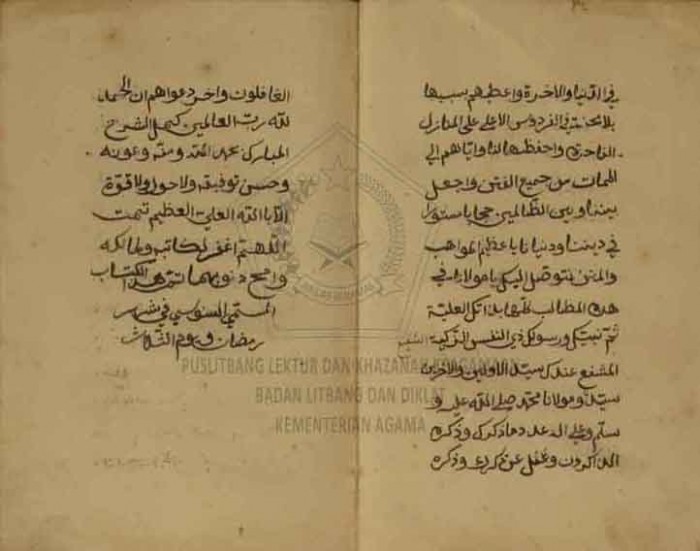 في الدنيا والاخرة واعطهم بسببها
بلا محنة في الفردوس الاعلى على المنازل
الفاخرة واحفظها لنا واياهم الى
الممات من جميع الفتن واجعل
بيننا وبين الظالمين حجابا مستورا
في ديننا ودنيانا يا عظيم المواهب
والمنن نتوصل اليك يا مولانا في
هذه المطالب كلها بذاتك العلية
ثم نبيك ورسولك ذي النفس الزكية
المشفع عندك سيد الاولين والاخرين
سيدنا ومولانا محمد صلى الله عليه و
سلم وعلى اله عدد ما ذكرك وذكره
الذاكرون وغفل عن ذكرك وذكره
الغافلون واخر دعواهم ان الحمد
لله رب العالمين كمل الشرح
المبارك بحمد الله ومنه وعونه
وحسن توفيقه ولا حول ولا قوة
الا بالله العلي العظيم تمت
اللهم اغفر لكاتبه ولمالكه
وامح ذنوبهما تمت هذا الكتاب
المسمى السنوسي في شهر
رمضان و يوم الثلاث
PUSLITBANG LEKTUR DAN KHAZANAH KEAGAMAAN
BADAN LITBANG DAN DIKLAT
KEMENTERIAN AGAMA